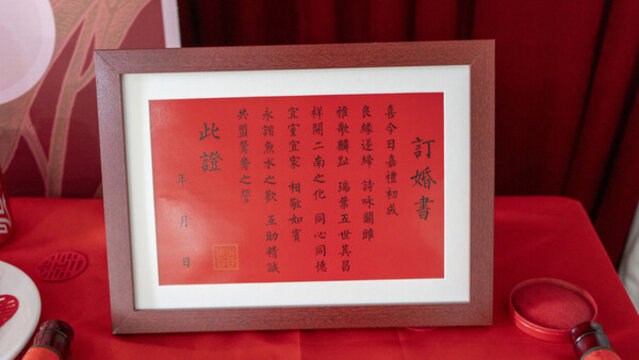 訂婚書
喜今日嘉禮初成
良緣遂締 詩詠關雎
雅歌麟趾 瑞葉五世其昌
祥開二南之化 同心同德
宜室宜家 相敬如賓
永諧魚水之歡 互助精誠
共盟鴛鴦之誓
此證
年 月 日